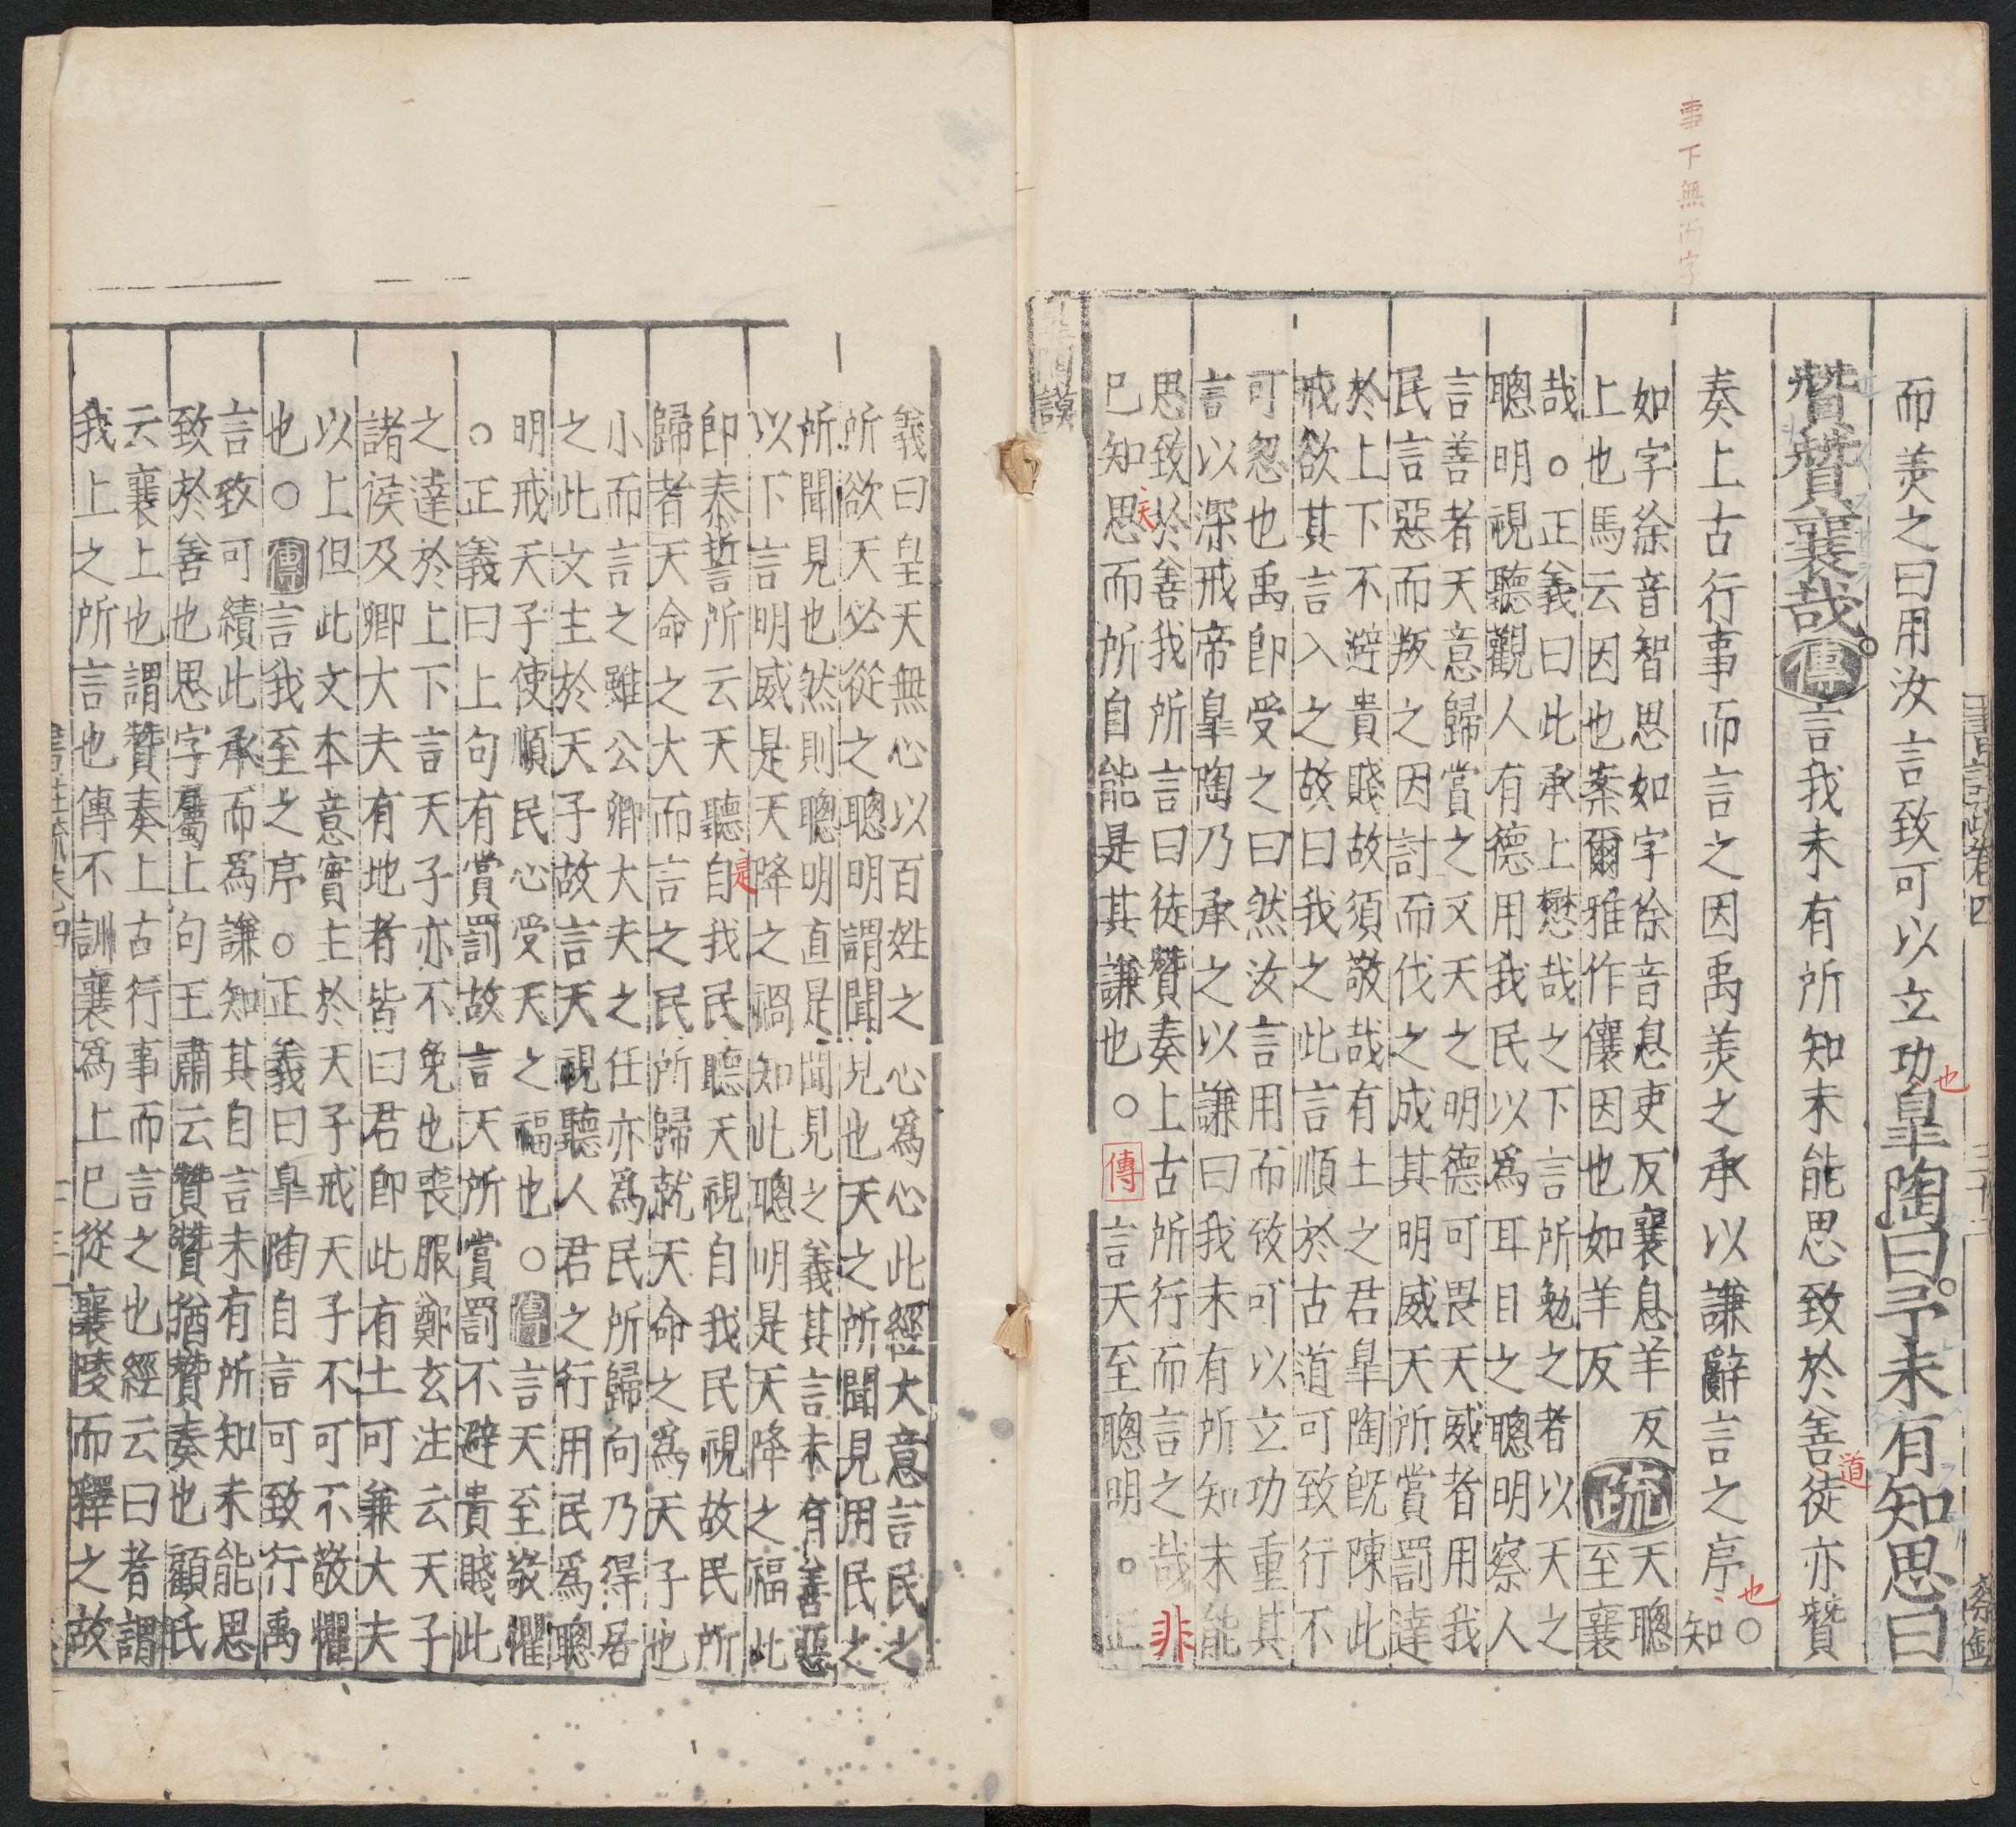 事下無而字
而羙之曰用汝言致可以立功皐陶曰予未有知思曰
也
贊贊襄哉傳言我未有所知未能思致於善徒亦贊
道
奏上古行事而言之因禹羙之承以謙辭言之序○知
也
如字徐音智思如字徐音息吏反襄息羊反
上也馬云因也案爾雅作儴因也如羊反
疏
天聰
至襄
哉○正義曰此承上懋哉之下言所勉之者以天之
聰明視聽觀人有德用我民以爲耳目之聰明察人
言善者天意歸賞之又天之明德可畏天威者用我
民言惡而叛之因討而伐之成其明威天所賞罰達
於上下不避貴賤故須敬哉有土之君皐陶旣陳此
戒欲其言入之故曰我之此言順於古道可致行不
可忽也禹卽受之曰然汝言用而致可以立功重其
言以深戒帝皐陶乃承之以謙曰我未有所知未能
思致於善我所言曰徒贊奏上古所行而言之哉非
天
己知思而所自能是其謙也○傳言天至聰明○正
皐陶謨
義曰皇天無心以百姓之心爲心此經大意言民之
所欲天必從之聰明謂聞見也天之所聞見用民之
所聞見也然則聰明直是聞見之義其言未有善惡
以下言明威是天降之禍知此聰明是天降之福此
是
卽泰誓所云天聽自我民聽天視自我民視故民所
歸者天命之大而言之民所歸就天命之爲天子也
小而言之雖公卿大夫之任亦爲民所歸向乃得居
之此文主於天子故言天視聽人君之行用民爲聰
明戒天子使順民心受天之福也○傳言天至敬懼
○正義曰上句有賞罰故言天所賞罰不避貴賤此
之達於上下言天子亦不免也喪服鄭玄注云天子
諸侯及卿大夫有地者皆曰君卽此有土可兼大夫
以上但此文本意實主於天子戒天子不可不敬懼
也○傳言我至之序○正義曰皐陶自言可致行禹
言致可績此承而爲謙知其自言未有所知未能思
致於善也思字屬上句王肅云贊贊猶贊奏也顧氏
云襄上也謂贊奏上古行事而言之也經云曰者謂
我上之所言也傳不訓襄爲上已從襄陵而釋之故